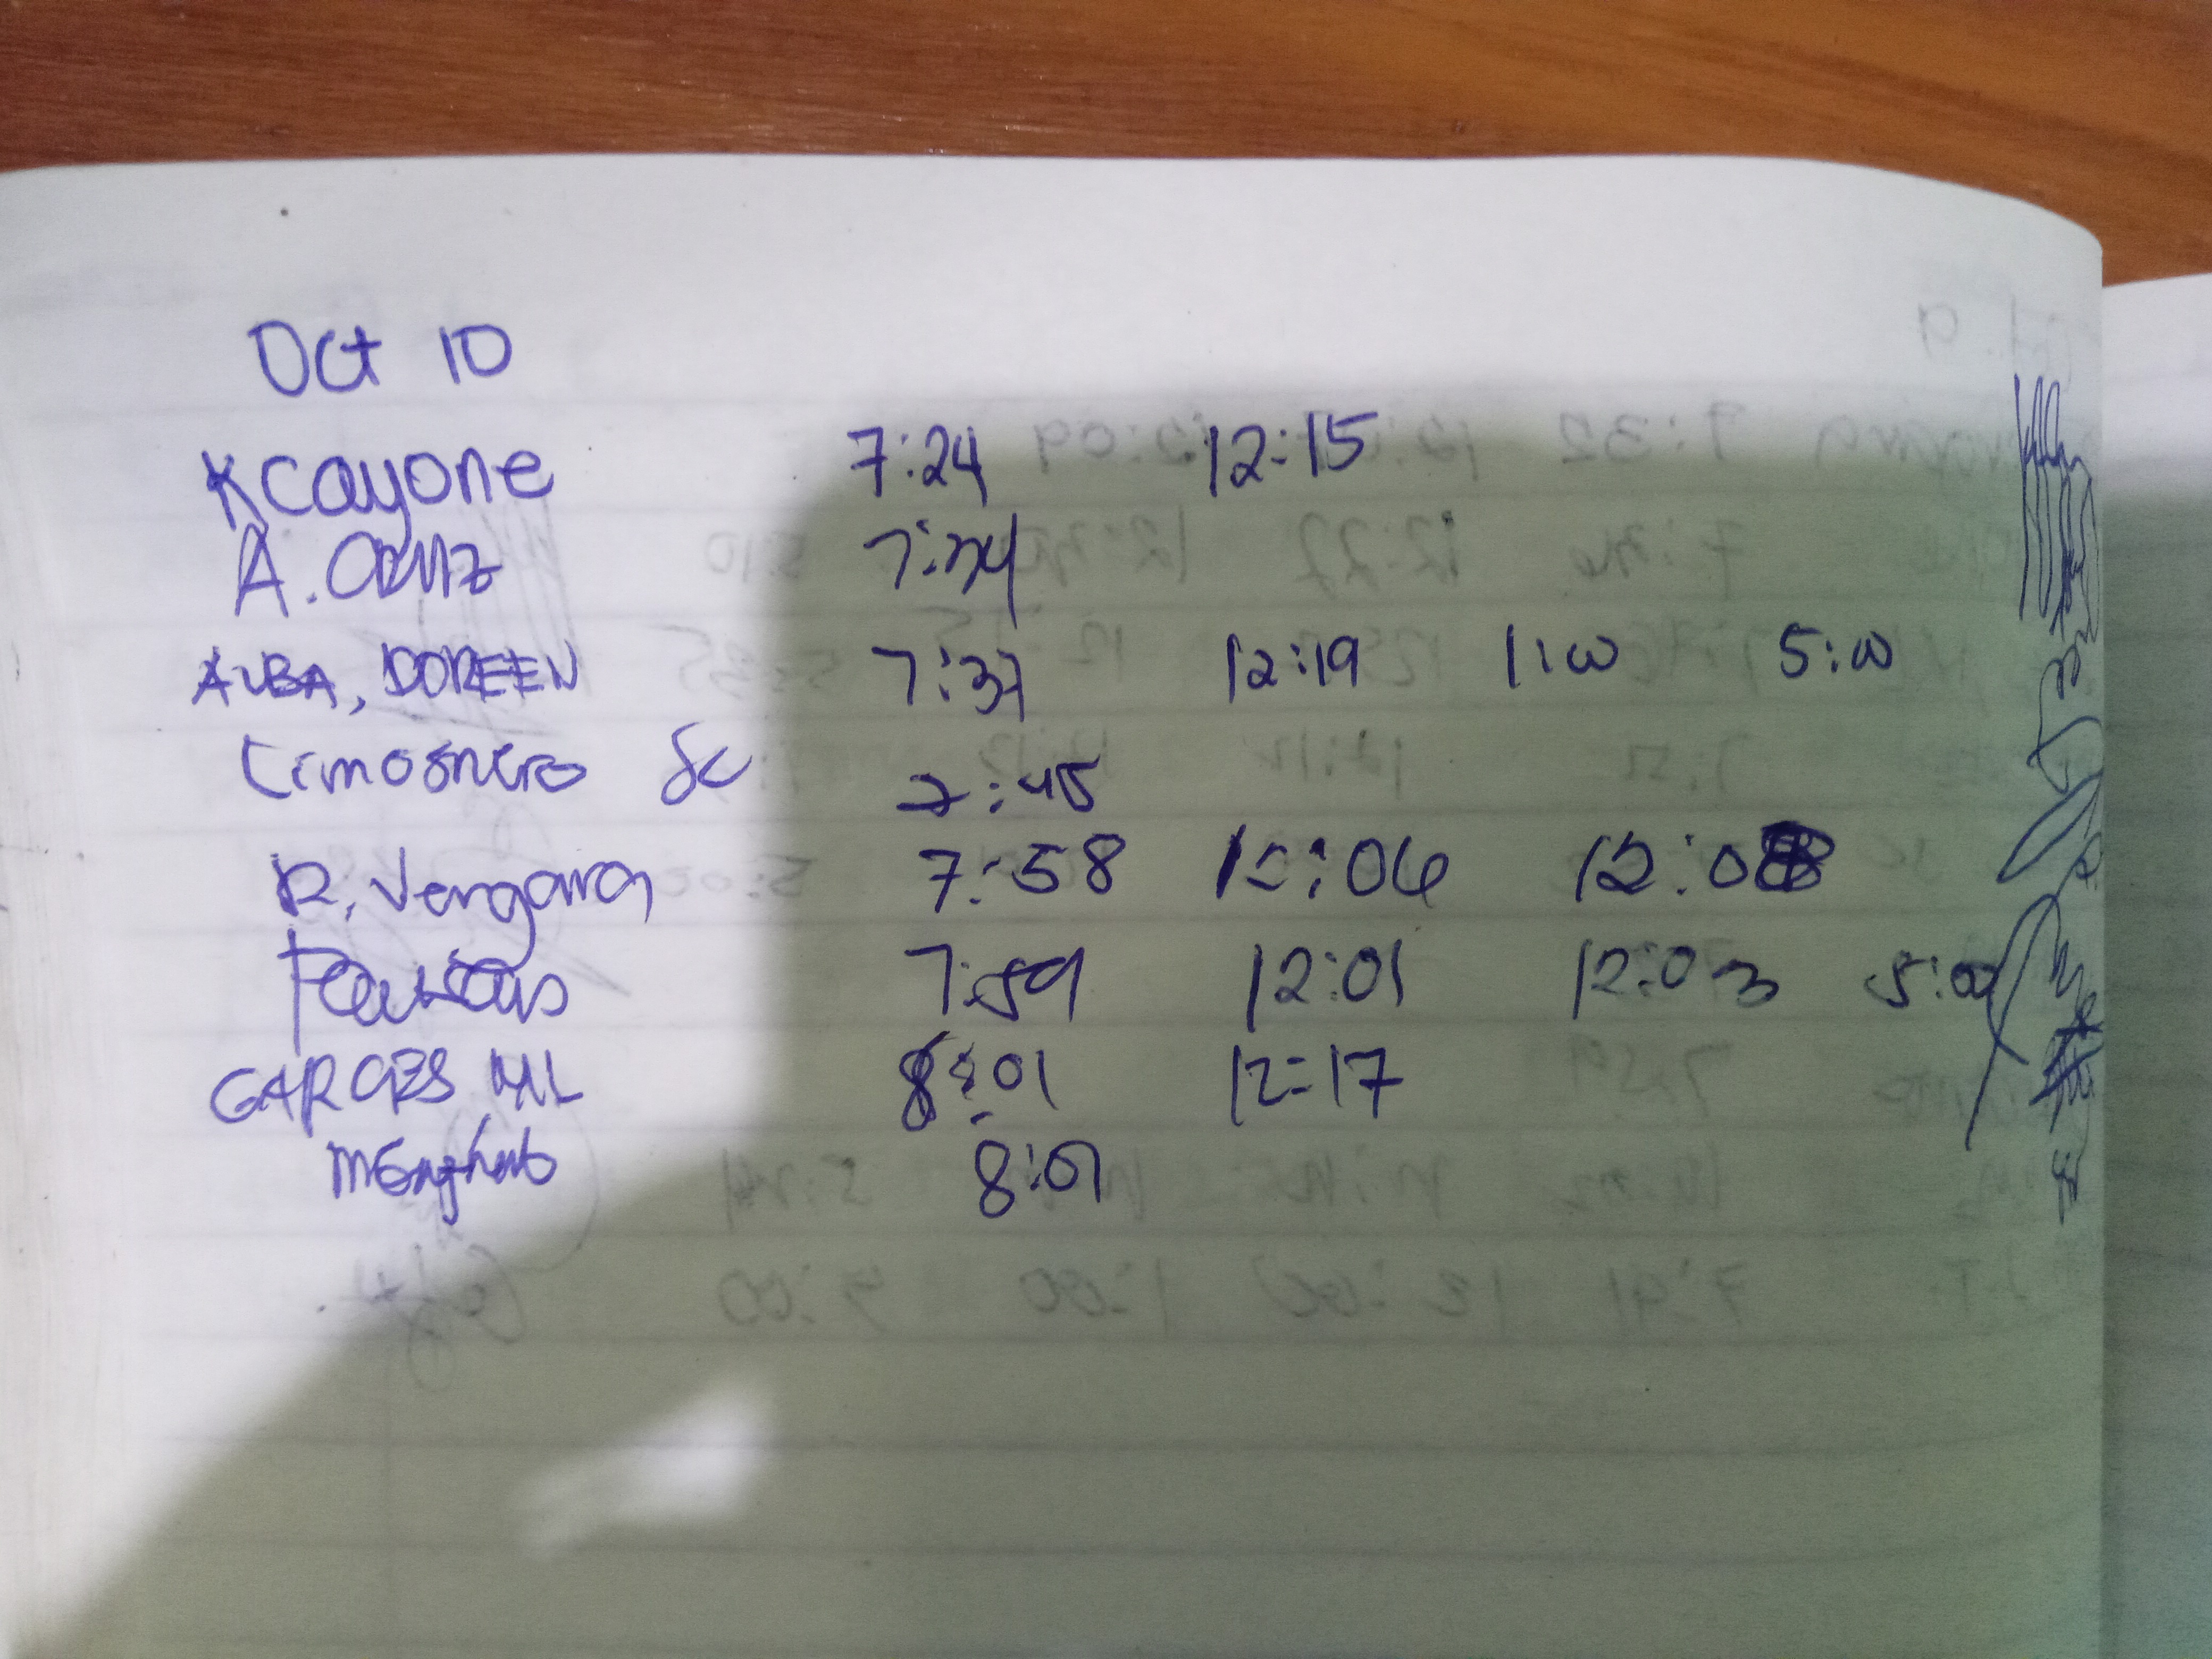 Oct 10
K cayone 7:24 12:15
A. 7:34
ALBA, DOREEN 7:37 12:19 1:00 5:00
Limosnero 7:45
R. Vergara 7:58 12:06 12:08
7:59 12:01 12:03 5:00
GARCES ML 8:01 12:17
8:01